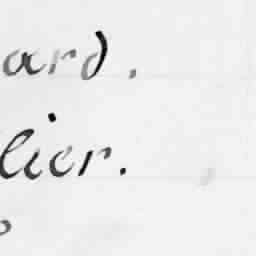 ard.
lier.